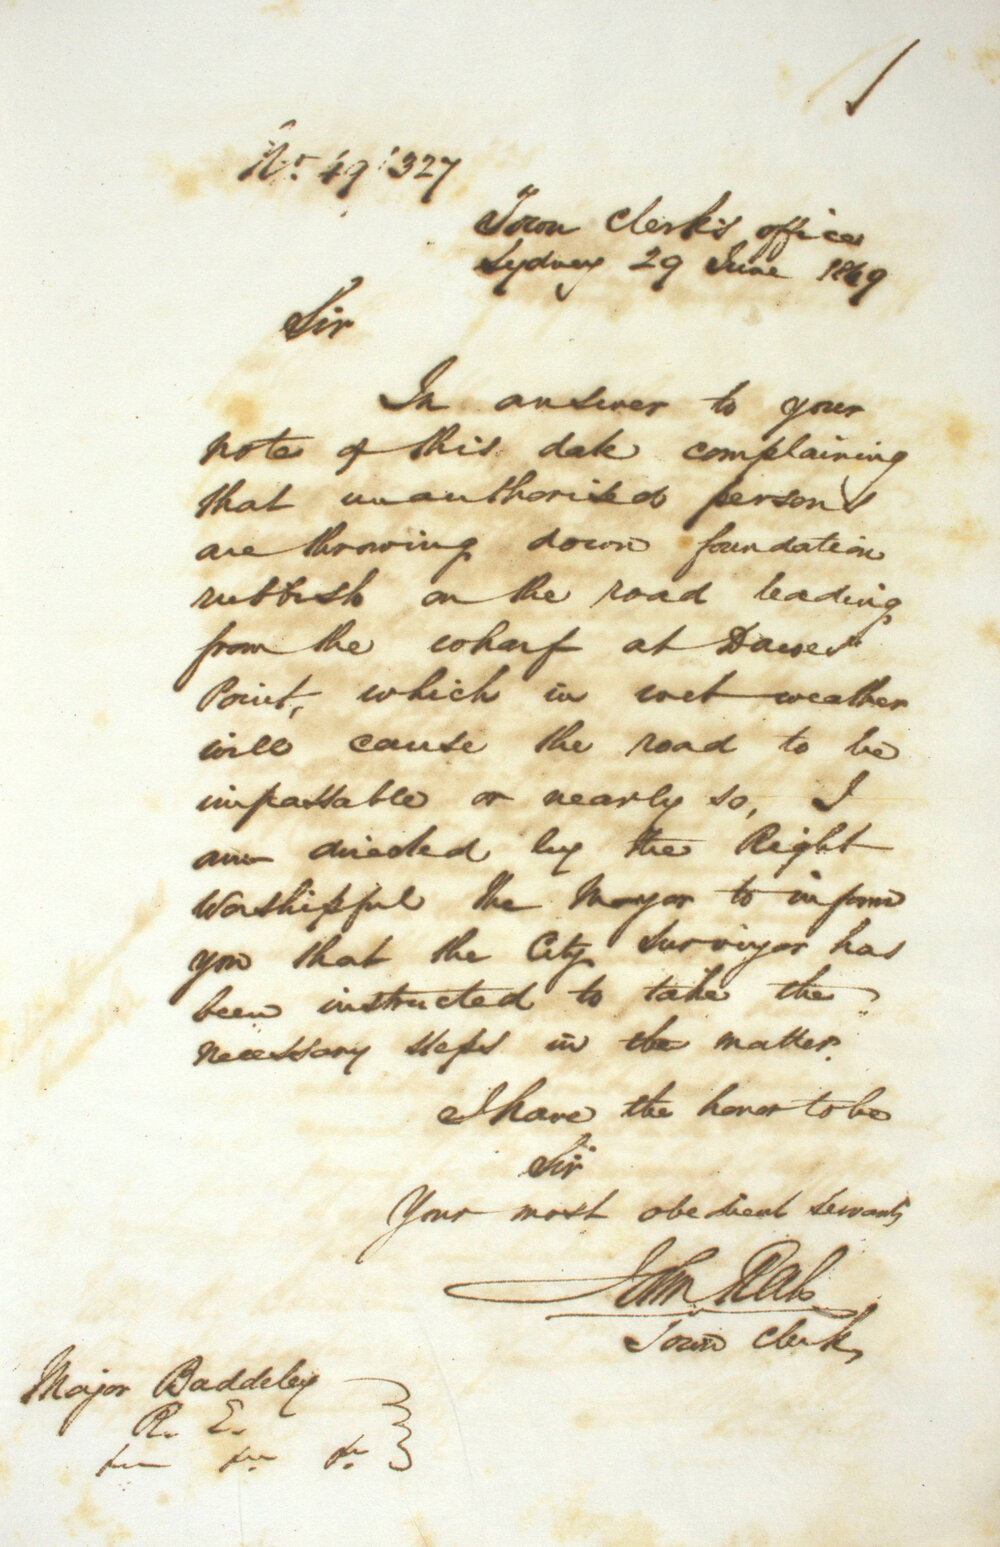 No. 49/327
Town Clerk's office
Sydney 29 June 1849
Sir
In answer to your
note of this date complaining
that unauthorised persons
are throwing down foundation
rubbish on the road leading
from the wharf at Dawes
Point, which in wet weather
will cause the road to be
impassable or nearly so, I
am directed by the Right
Worshipful the Mayor to inform
you that the City Surveyor has
been instructed to take the
necessary steps in the matter.
I have the honor to be
Sir
Your most obedient servant
John Rae
Town Clerk,
Major Baddeley
R. E.